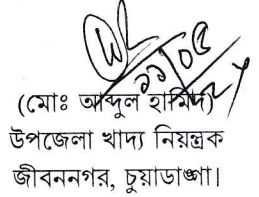 ১১/০৫
(মোঃ আব্দুল হামিদ)
উপজেলা খাদ্য নিয়ন্ত্রক
জীবননগর, চুয়াডাঙ্গা।